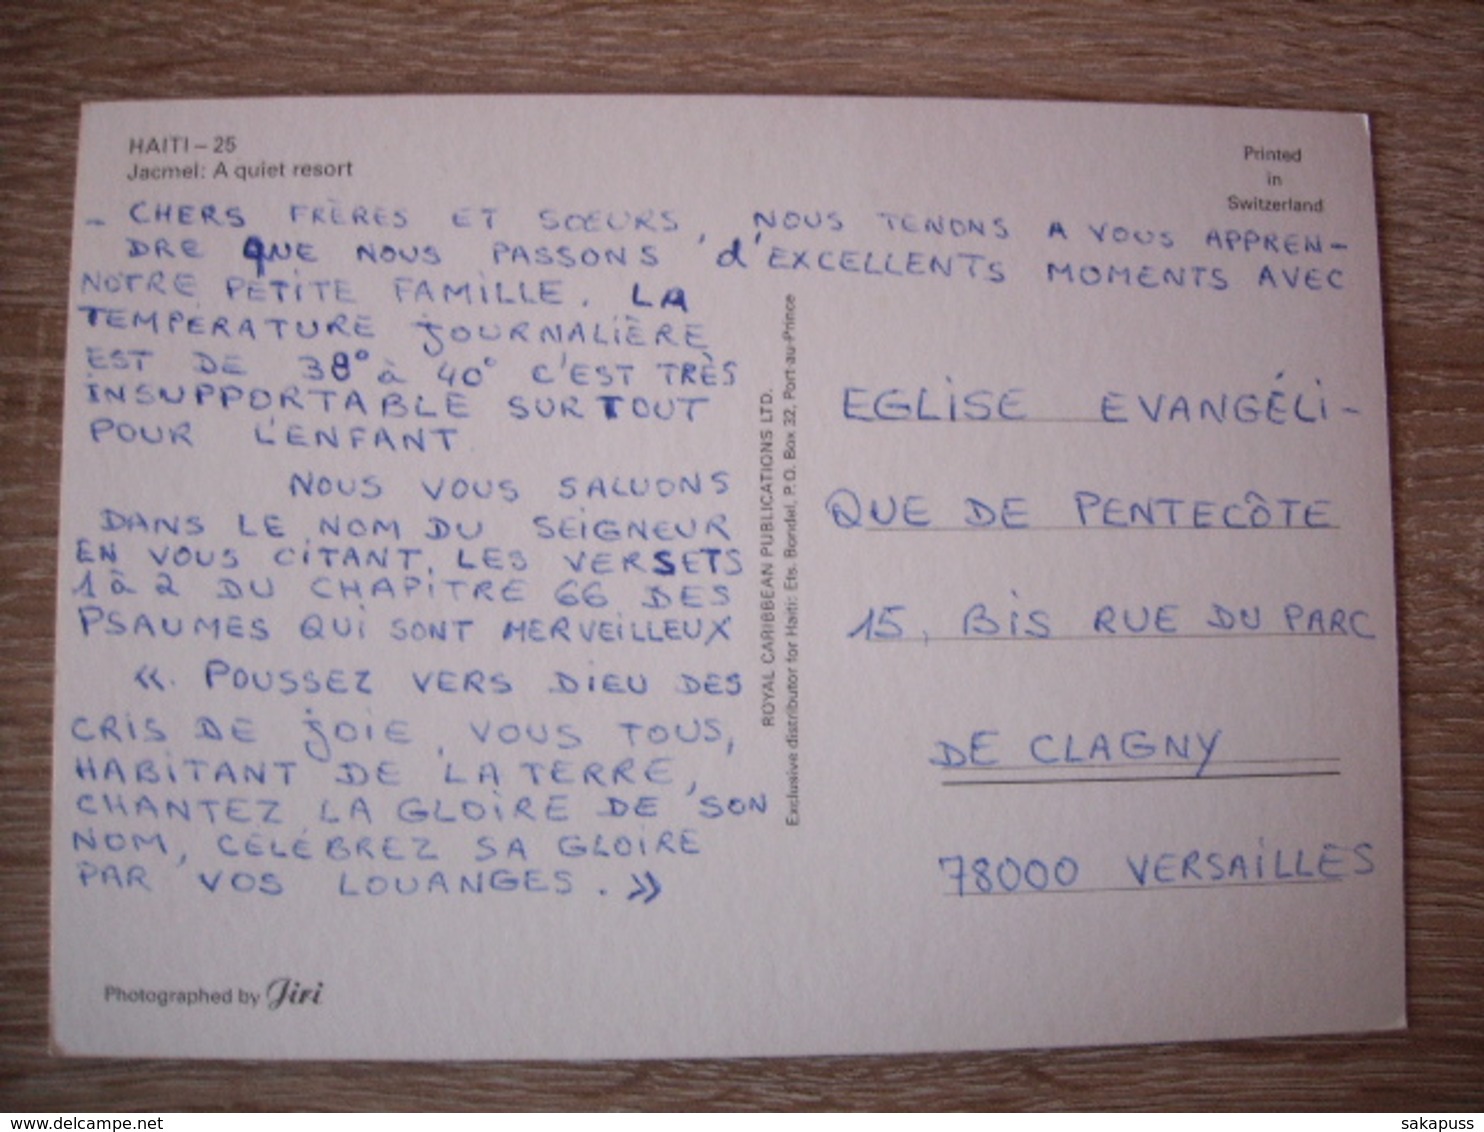 HAITI – 25
Jacmel: A quiet resort
Printed
in
Switzerland
– CHERS FRÈRES ET SŒURS, NOUS TENONS A VOUS APPREN-
DRE QUE NOUS PASSONS d'EXCELLENTS MOMENTS AVEC
NOTRE PETITE FAMILLE. LA
TEMPÉRATURE JOURNALIÈRE
EST DE 38° à 40° C'EST TRÈS
INSUPPORTABLE SURTOUT
POUR L'ENFANT
NOUS VOUS SALUONS
DANS LE NOM DU SEIGNEUR
EN VOUS CITANT, LES VERSETS
1 à 2 DU CHAPITRE 66 DES
PSAUMES QUI SONT MERVEILLEUX
«. POUSSEZ VERS DIEU DES
CRIS DE JOIE, VOUS TOUS,
HABITANT DE LA TERRE,
CHANTEZ LA GLOIRE DE SON
NOM, CÉLÉBREZ SA GLOIRE
PAR VOS LOUANGES. »
Photographed by Jiri
ROYAL CARIBBEAN PUBLICATIONS LTD.
Exclusive distributor for Haiti: Ets. Bondel, P.O. Box 32, Port-au-Prince
EGLISE EVANGÉLI-
QUE DE PENTECÔTE
15, BIS RUE DU PARC
DE CLAGNY
78000 VERSAILLES
sakapuss